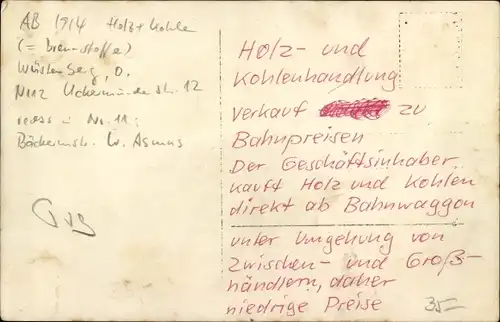 AB 1914 Holz + Kohle
(= Brennstoffe)
Wüstenberg, O.
N112 Ueckermünder Str. 12
rechts: Nr. 11:
Bäckermstr. W. Asmus
GvB
Holz- und
Kohlenhandlung
Verkauf zu
Bahnpreisen
Der Geschäftsinhaber
kauft Holz und Kohlen
direkt ab Bahnwaggon
unter Umgehung von
Zwischen- und Groß-
händlern, daher
niedrige Preise
35–